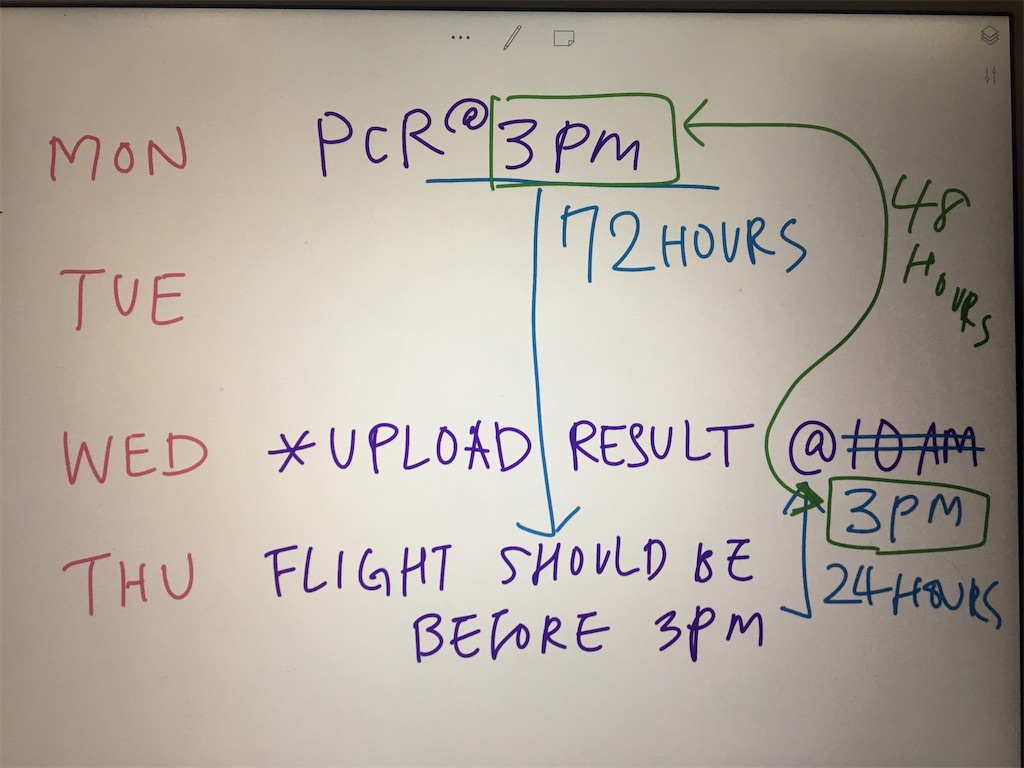 MON PCR @ 3 PM
72 HOURS
48
HOURS
TUE
WED *UPLOAD RESULT @ 10 AM
3PM
THU FLIGHT SHOULD BE
24 HOURS
BEFORE 3PM